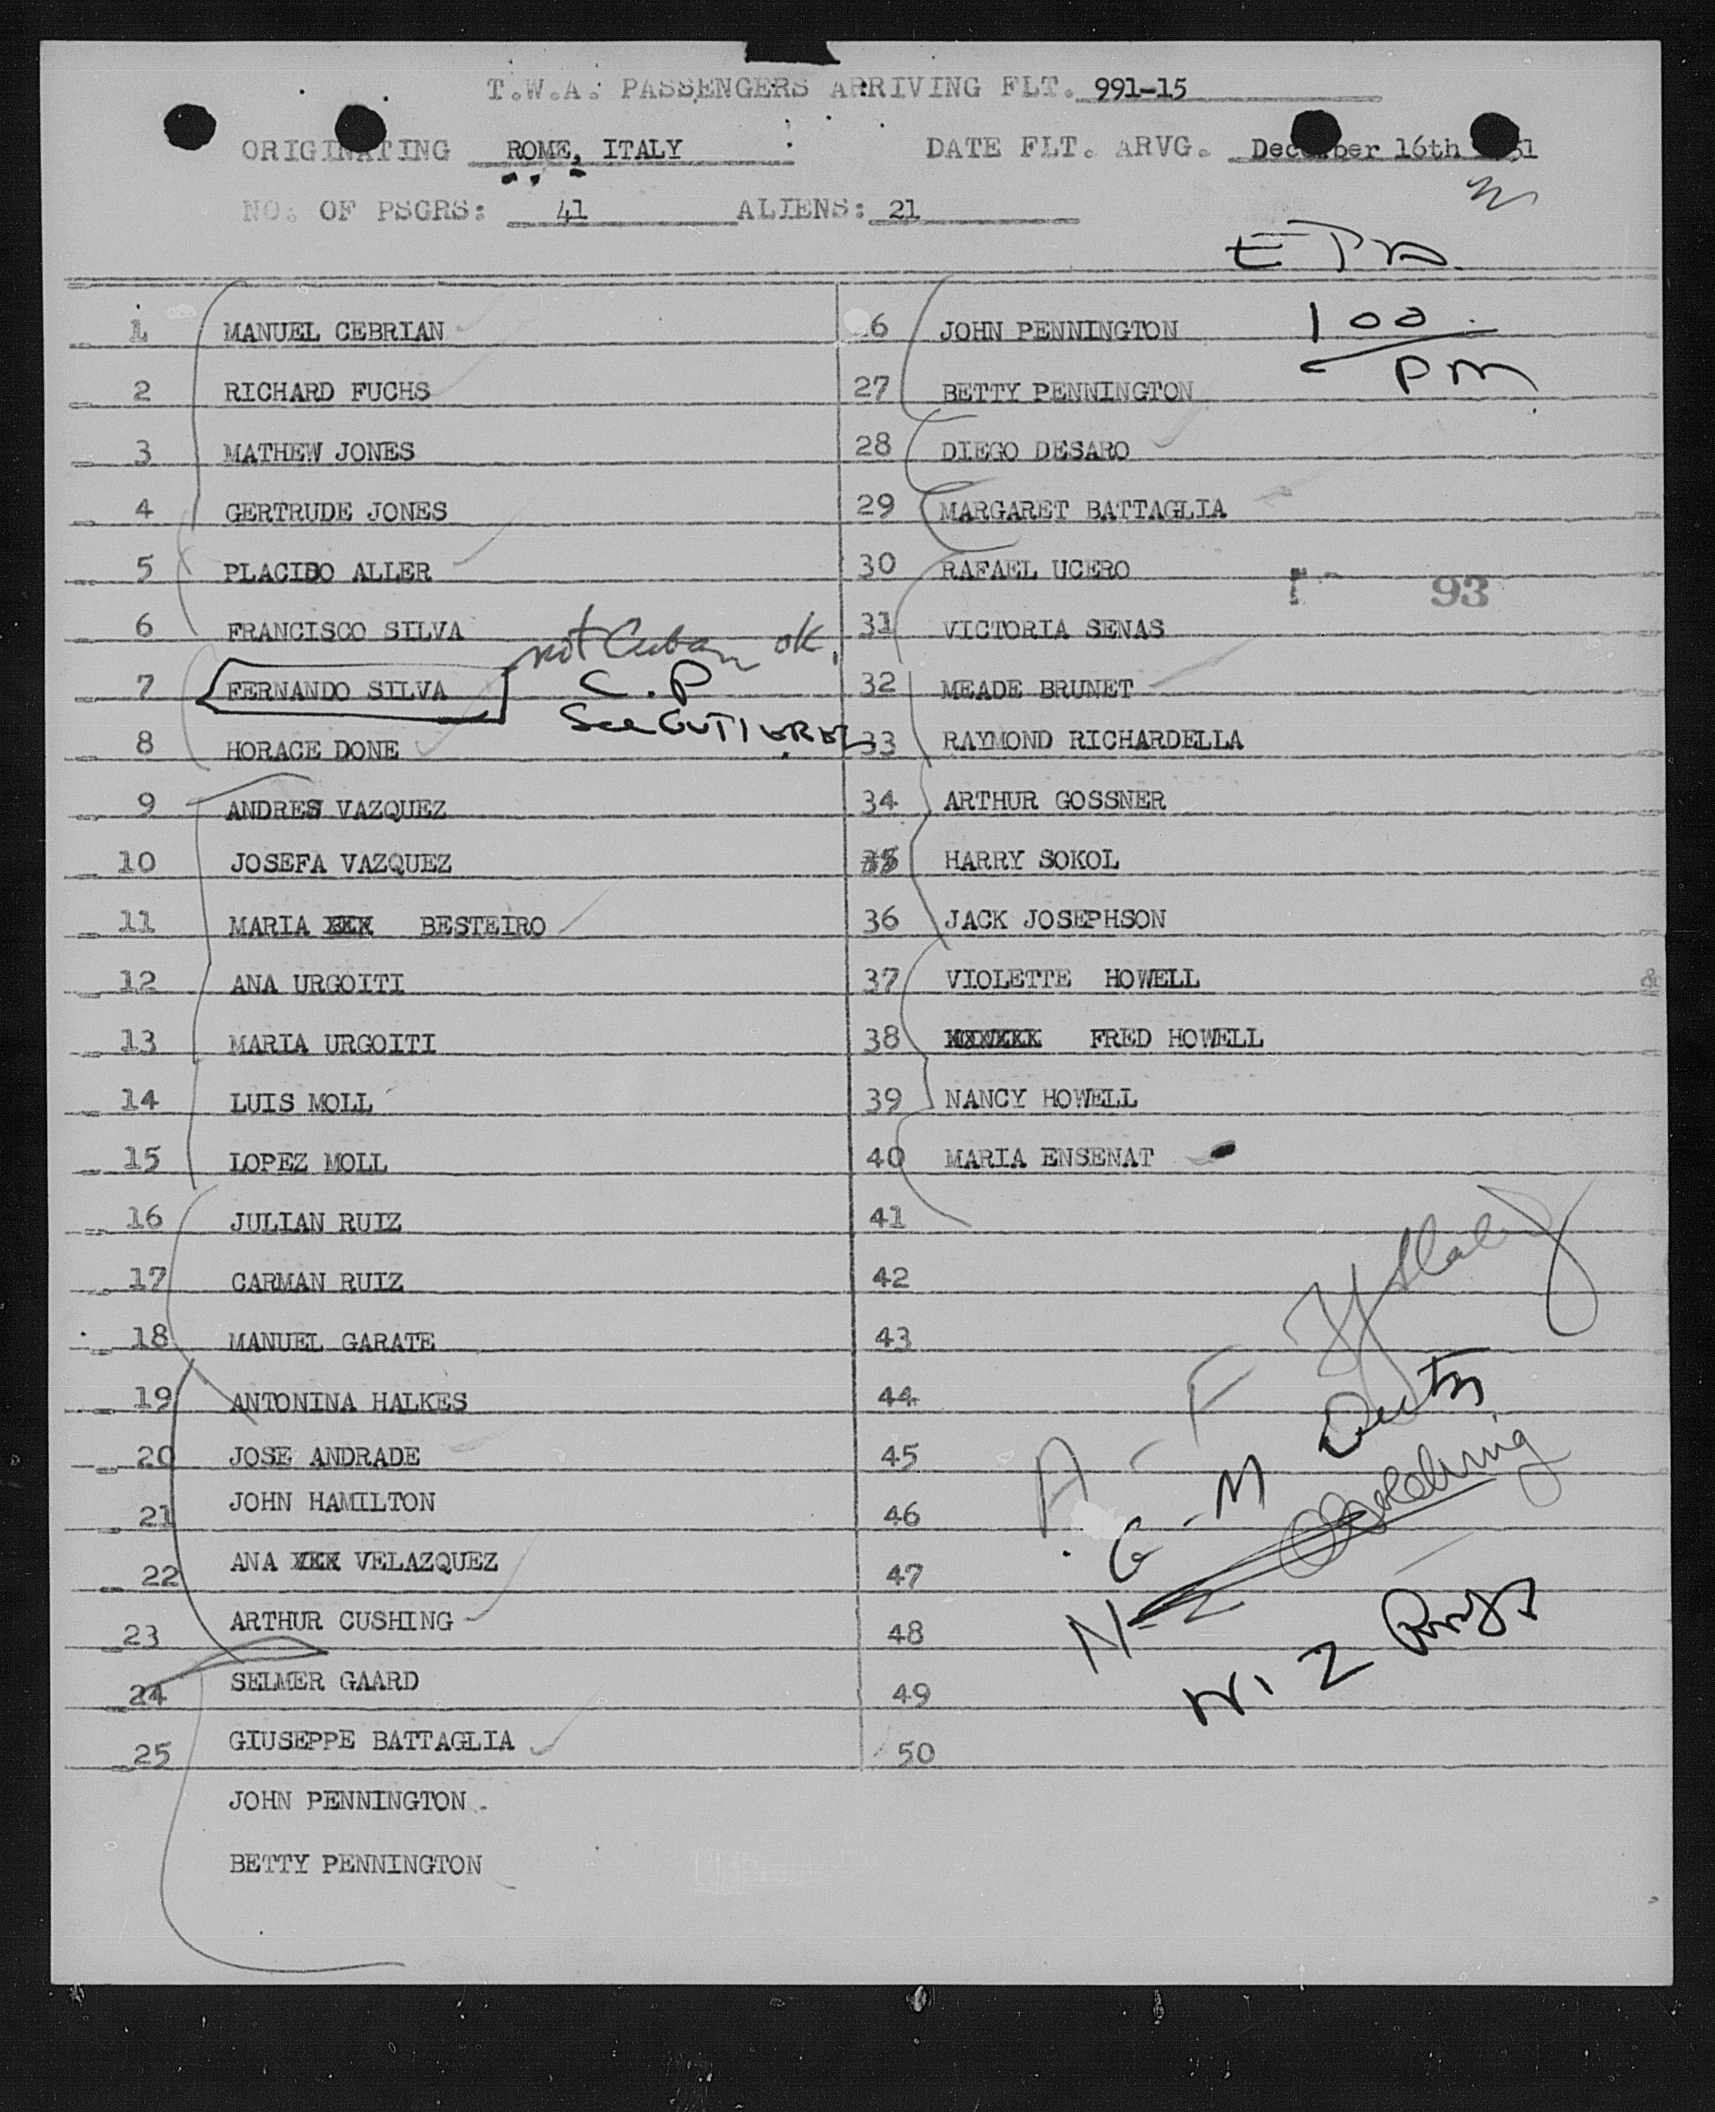 T.W.A. PASSENGERS ARRIVING FLT. 991-15
ORIGINATING ROME, ITALY DATE FLT. ARVG. December 16th 51
NO. OF PSGRS: 41 ALIENS: 21
1 MANUEL CEBRIAN
2 RICHARD FUCHS
3 MATHEW JONES
4 GERTRUDE JONES
5 PLACIDO ALLER
6 FRANCISCO SILVA
not Cuban ok.
7 FERNANDO SILVA C.P
See GUTIEREZ
8 HORACE DONE
9 ANDRES VAZQUEZ
10 JOSEFA VAZQUEZ
11 MARIA BESTEIRO
12 ANA URGOITI
13 MARIA URGOITI
14 LUIS MOLL
15 LOPEZ MOLL
16 JULIAN RUIZ
17 CARMAN RUIZ
18 MANUEL GARATE
19 ANTONINA HALKES
20 JOSE ANDRADE
21 JOHN HAMILTON
22 ANA VELAZQUEZ
23 ARTHUR CUSHING
24 SELMER GAARD
25 GIUSEPPE BATTAGLIA
JOHN PENNINGTON
BETTY PENNINGTON
100
PM
6 JOHN PENNINGTON
27 BETTY PENNINGTON
28 DIEGO DESARO
29 MARGARET BATTAGLIA
30 RAFAEL UCERO
93
31 VICTORIA SENAS
32 MEADE BRUNET
33 RAYMOND RICHARDELLA
34 ARTHUR GOSSNER
35 HARRY SOKOL
36 JACK JOSEPHSON
37 VIOLETTE HOWELL
38 FRED HOWELL
39 NANCY HOWELL
40 MARIA ENSENAT
41
42
43
44
45
46
47
48
49
50
A - F
G - M
N - Z Golding
N - Z